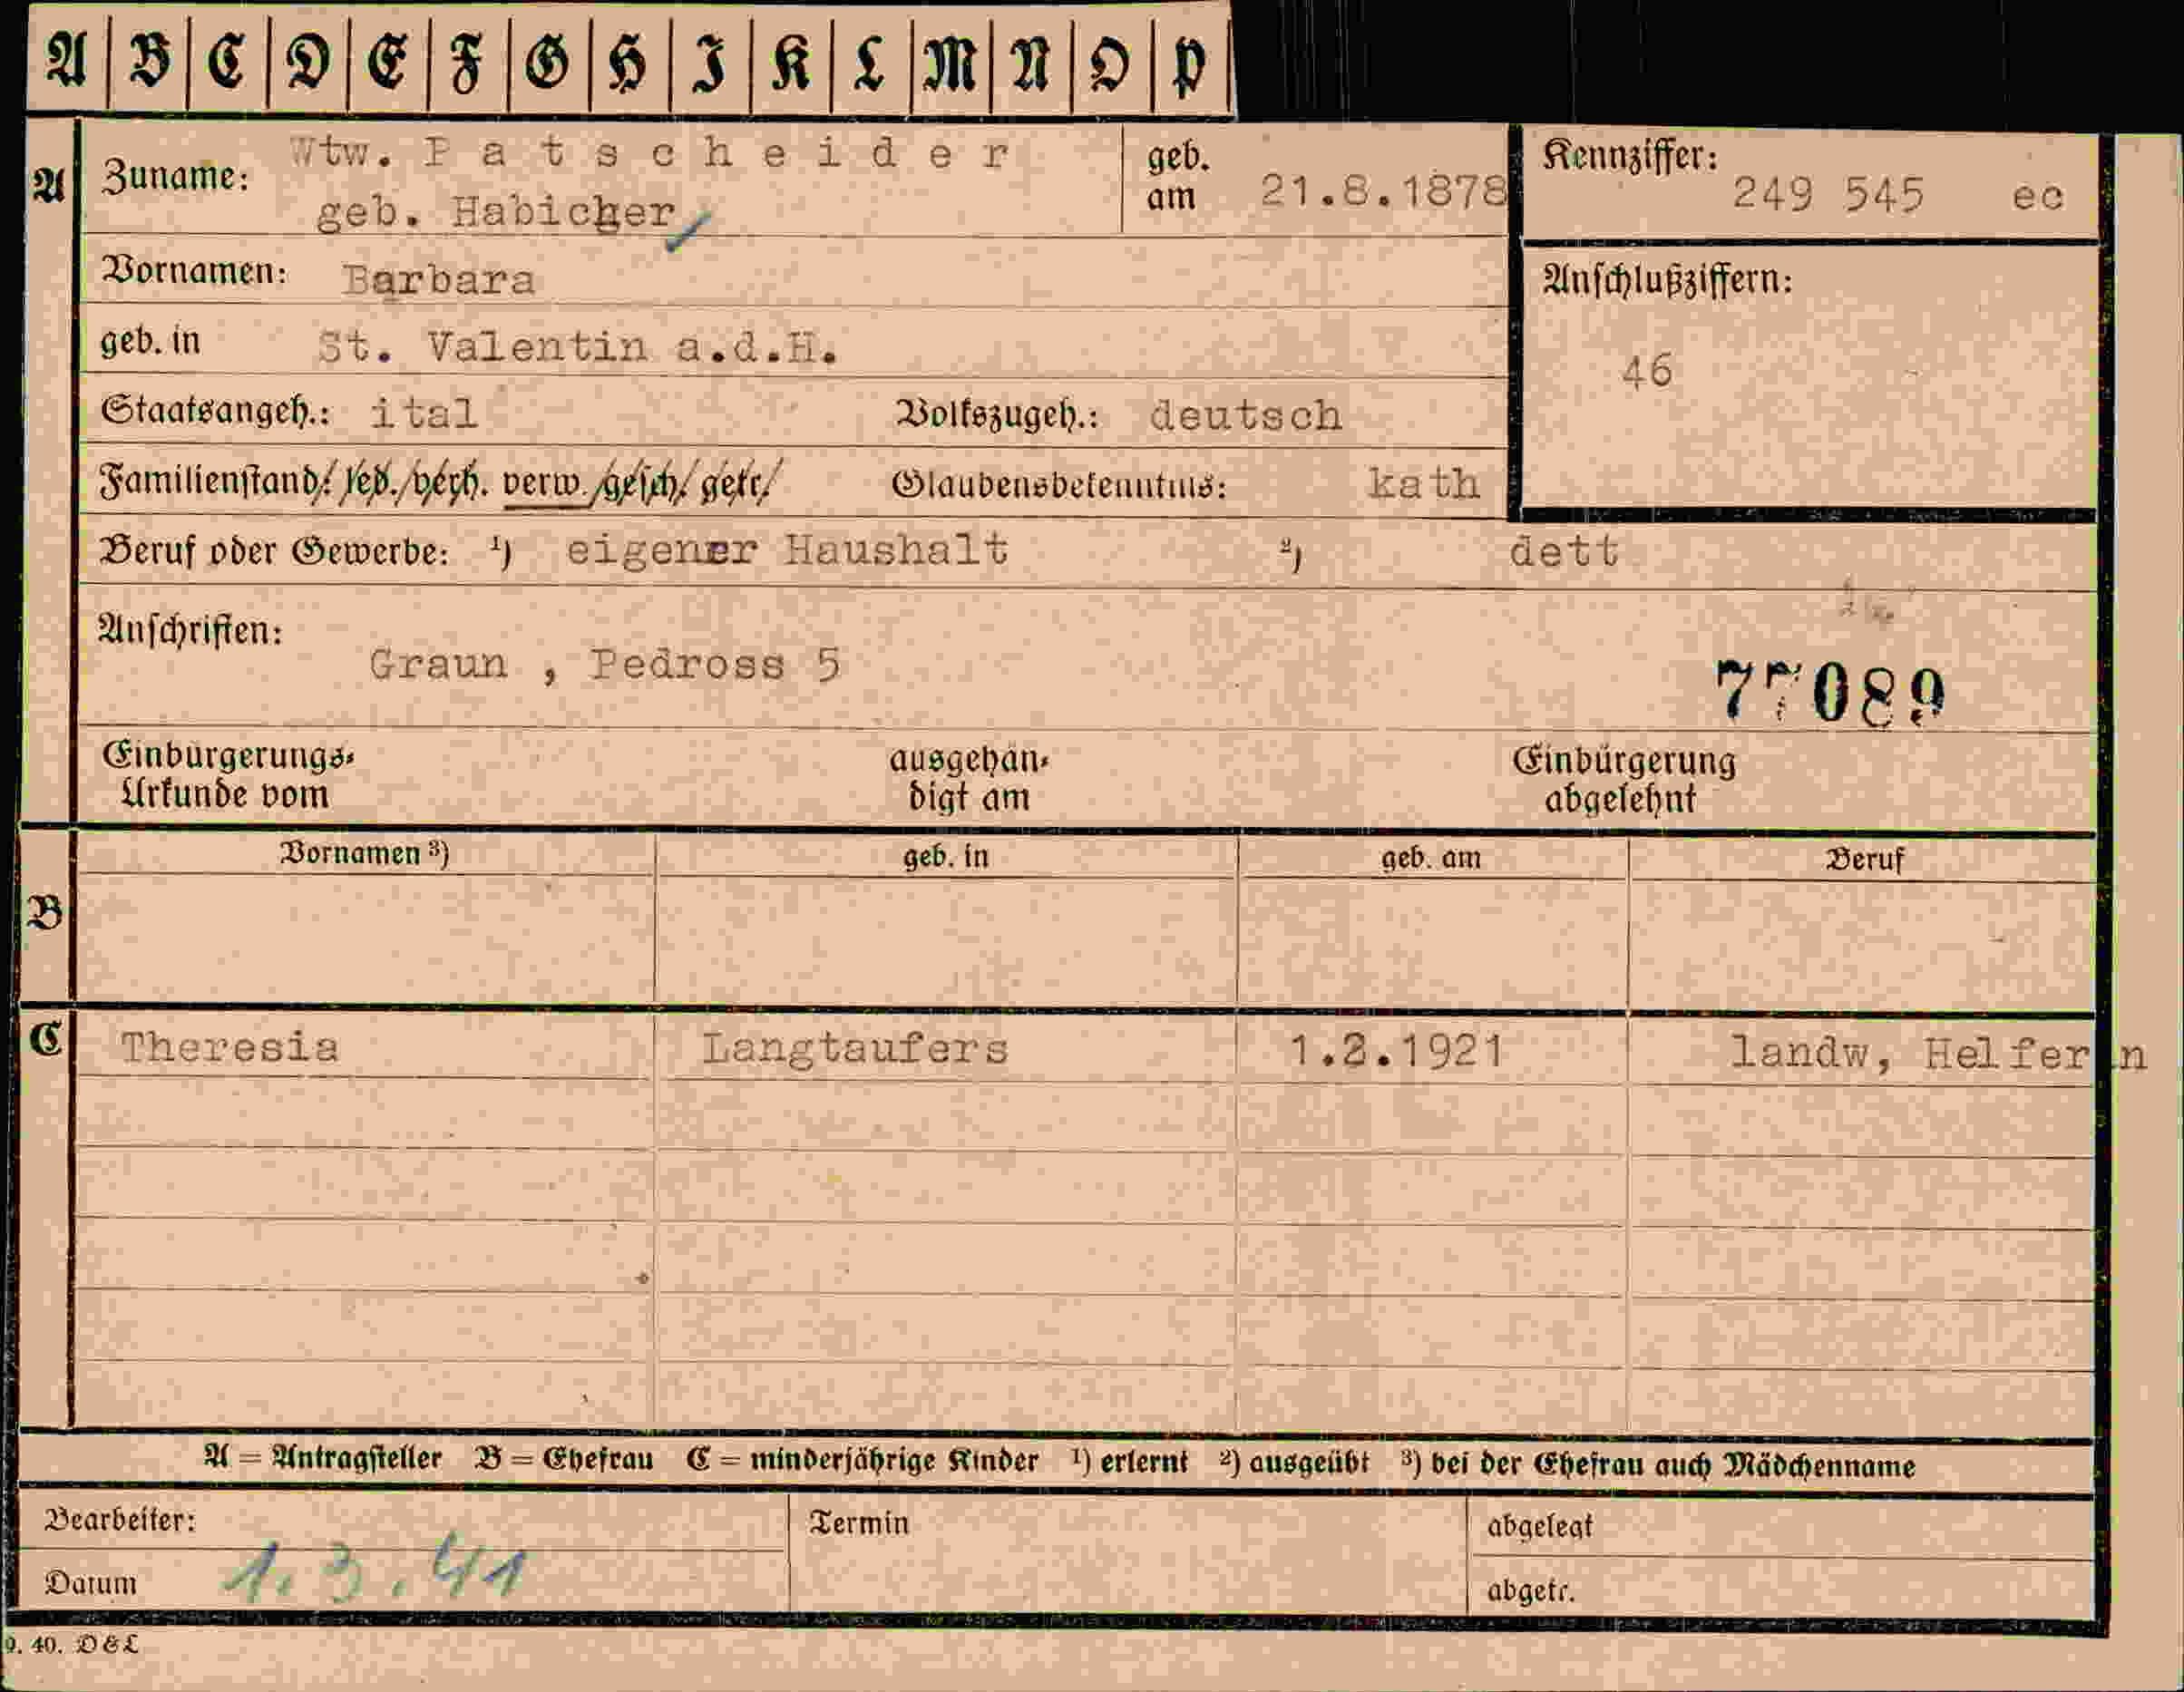 A B C D E F G H I K L M N O P
A Zuname: Wtw. Patscheider geb. am 21.8.1878 Kennziffer: 249 545 ec
geb. Habicher
Vornamen: Barbara Anschlußziffern:
geb. in St. Valentin a.d.H. 46
Staatsangeh.: ital Volkszugeh.: deutsch
Familienstand: led. verh. verw. gesch. getr. Glaubensbekenntnis: kath
Beruf oder Gewerbe: ¹) eigener Haushalt ²) dett
Anschriften:
Graun , Pedross 5 77089
Einbürgerungs- ausgehän- Einbürgerung
Urkunde vom digt am abgelehnt
Vornamen ³) geb. in geb. am Beruf
B
C Theresia Langtaufers 1.2.1921 landw, Helferin
A = Antragsteller B = Ehefrau C = minderjährige Kinder ¹) erlernt ²) ausgeübt ³) bei der Ehefrau auch Mädchenname
Bearbeiter: Termin abgelegt
Datum 1.3.41 abgetr.
9. 40. D&L